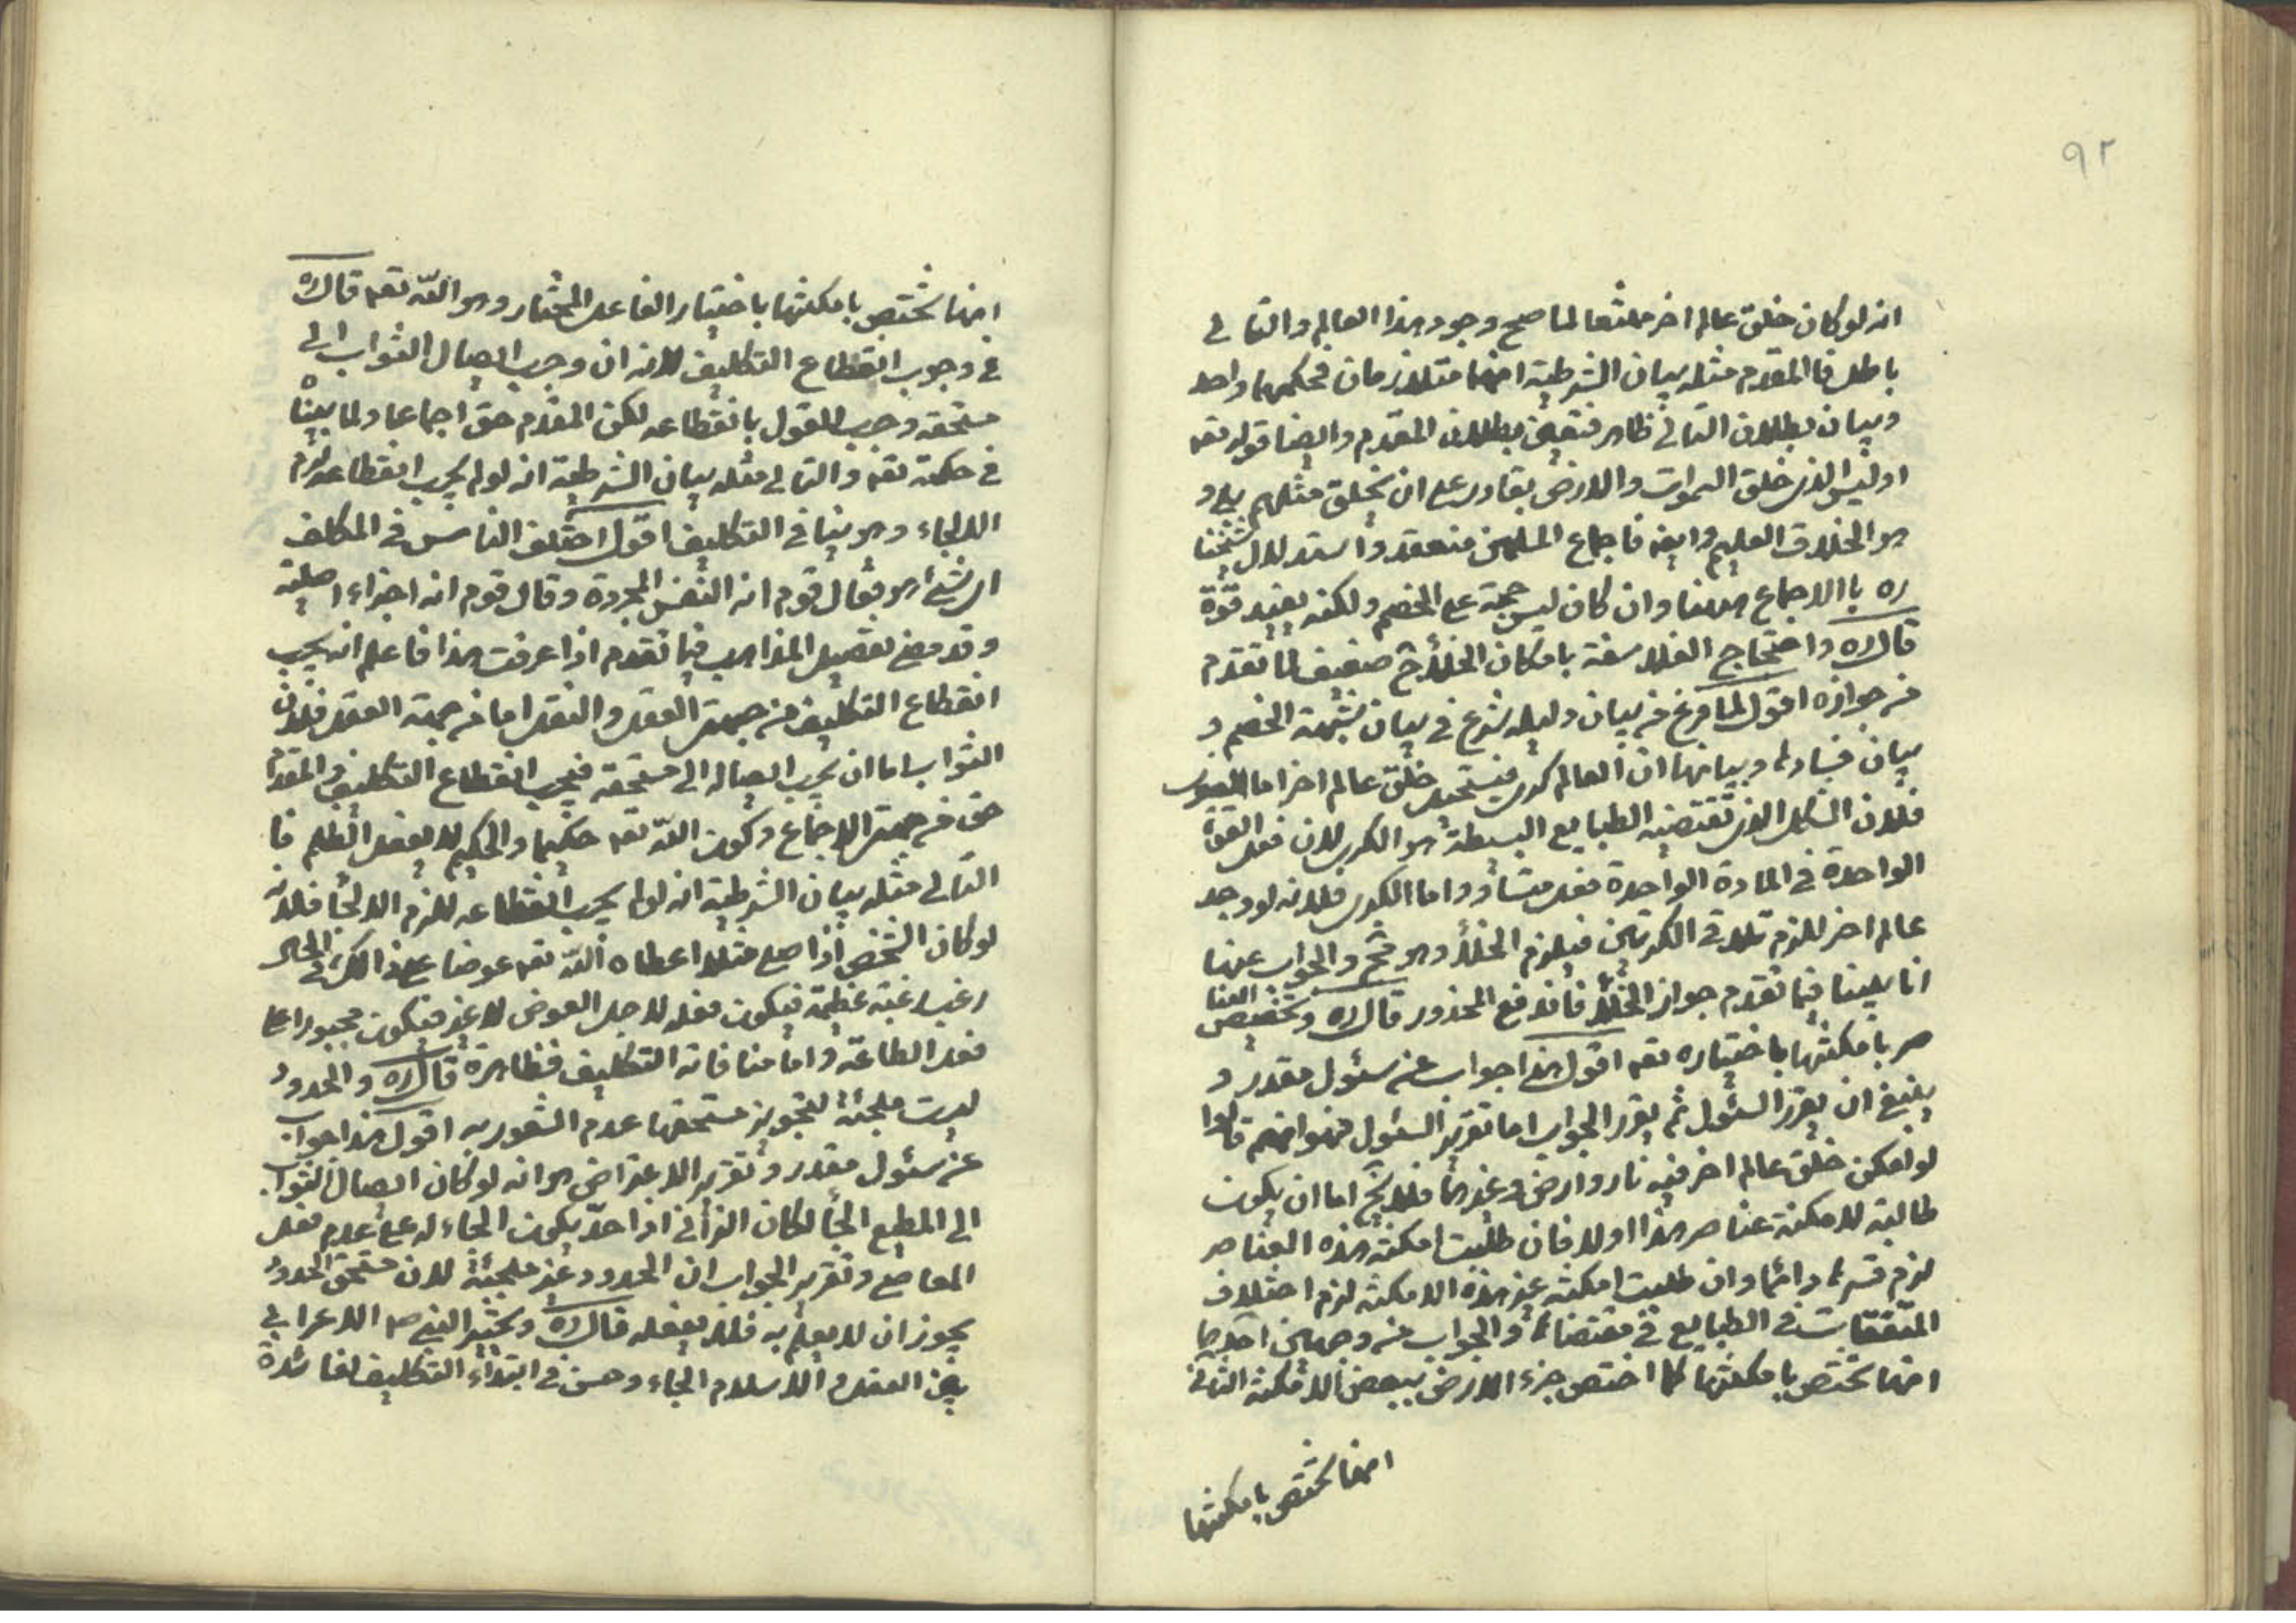 ٩٢
انه لو كان خلق عالم اخر ممتنعا لما صح وجود هذا العالم والتالى
باطل فالمقدم مثله بيان الشرطية انهما متلازمان فحكمهما واحد
وبيان بطلان التالى ظاهر فتعين بطلان المقدم وايضا قوله تعه
اوليس الذى خلق السموات والارض بقادر على ان يخلق مثلهم بلى و
هو الخلاق العليم وايضه فاجماع المسلمين منعقد واستدلال شيخنا
ره باالاجماع ههنا وان كان ليس حجة على الخصم ولكنه يفيد قوة
قال ره واحتجاج الفلاسفة بامكان الخلأ ح ضعيف لما تقدم
من جوازه اقول لما فرغ من بيان دليله شرع فى بيان شبهة الخصم و
بيان فسادها وبيانها ان العالم كرى فيستحيل خلق عالم اخر اما الصغرى
فلان الشكل الذى تقتضيه الطبايع البسيطة هو الكرى لان فعل القوة
الواحدة فى المادة الواحدة فعل متشا وواما الكبرى فلانه لو وجد
عالم اخر للزم تلاقى الكرتين فيلزم الخلأ وهو مح والجواب عنها
انا بينا فيما تقدم جواز الخلأ فاندفع المحذور قال ره وتخصيص العنا
صر بامكنتها باختياره تعه اقول هذا جواب عن سئول مقدر و
ينبغى ان يقرر السئول ثم يقرر الجواب اما تقرير السئول فهو انهم قالوا
لو امكن خلق عالم اخر فيه نار وارض وغيرهما فلا يخ اما ان يكون
طالبة لامكنة عناصر هذا اولا فان طلبت امكنة هذه العناصر
لزم قسرها دائما وان طلبت امكنة غير هذه الامكنة لزم اختلاف
المتفقات فى الطبايع فى مقتضاها والجواب من وجهين احدهما
انها تختص بامكنتها كما اختص جزء الارض ببعض الامكنة الثانى
انها تختص بامكنتها
انها تختص بامكنتها باختيار الفاعل المختار وهو الله تعه قال ره
فى وجوب انقطاع التكليف لانه ان وجب ايصال الثواب الى
مستحقه وجب القول بانقطاعه لكن المقدم حق اجماعا ولما بيناه
فى حكمته تعه والتالى مثله بيان الشرطية انه لو لم يجب انقطاعه لزم
الالجاء وهو ينافى التكليف اقول اختلف الناس فى المكلف
اى شئ هو فقال قوم انه النفس المجردة وقال قوم انه اجزاء اصلية
وقد مضى تفصيل المذاهب فيما تقدم اذا عرفت هذا فاعلم انه يجب
انقطاع التكليف من جهتى العقل والنقل اما من جهة العقل فلان
الثواب اما ان يجب ايصاله الى مستحقه فيجب انقطاع التكليف والمقدم
حق من جهة الاجماع وكون الله تعه حكيما والحكيم لا يفعل الظلم فا
التالى مثله بيان الشرطية انه لو لم يجب انقطاعه للزم الالجا فلانه
لو كان الشخص اذا صلى مثلا اعطاه الله تعه عوضا على ذلك فى الحال
رغب رغبة عظيمة فيكون فعله لاجل العوض لا غير فيكون مجبورا على
فعل الطاعة واما منافاته التكليف فظاهرة قال ره والحدود
ليست ملجئة لتجويز مستحقها عدم الشعور به اقول هذا جواب
عن سئول مقدر وتقرير الاعتراض هو انه لو كان ايصال الثواب
الى المطيع الجأ لكان الزانى اذا حد يكون الجاء له على عدم فعل
المعاصى وتقرير الجواب ان الحدود غير ملجئة لان مستحق الحدود
يجوز ان لا يعلم به فلا يفعله قال ره وتخيير النبى صم الاعرابى
بين القتل والاسلام الجاء وحسن فى ابتداء التكليف لفائدة